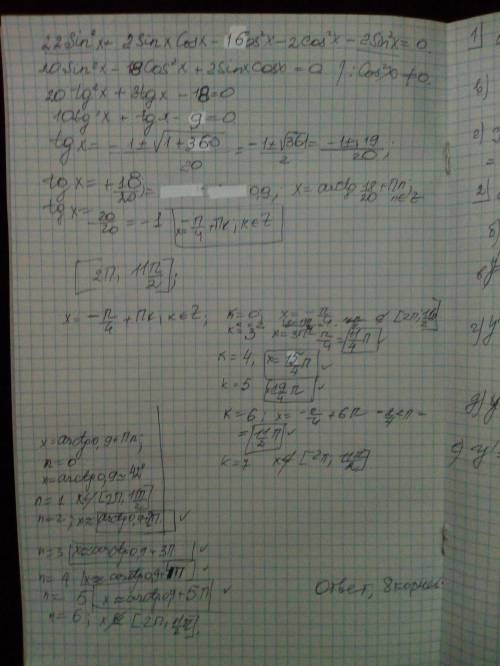 22Sin²x + 2Sinx Cosx - 16Cos²x - 2Cos²x - 2Sin²x = 0.
20Sin²x - 18Cos²x + 2SinxCosx = 0 /: Cos²x ≠ 0.
20 tg²x + 2tgx - 18 = 0
10tg²x + tgx - 9 = 0
tgx = -1 ± √(1+360) / 20 = -1 ± √361 / 2 = -1 ± 19 / 20 ;
tgx = + 18/20 = 0,9, x = arctg 18/20 + πn, n∈Z
tgx = - 20/20 = -1 x = -π/4 + πk, k∈Z
[2π, 11π/2];
x = -π/4 + πk, k∈Z;
k=0; x = -π/4 ∉ [2π, 11π/2]
k=3 x = 3π - π/4 = 11/4 π
k=4, x = 15/4 π ✓
k=5 x = 19/4 π ✓
k=6; x = -π/4 + 6π
k=7 x∉ [2π, 11π/2]
x = arctg0,9 + πn;
n=0
x = arctg0,9 ≈ 42°
n=1 x∉ [2π, 11π/2]
n=2; x = arctg0,9+2π ✓
n=3 x = arctg0,9 + 3π ✓
n=4 x = arctg0,9+4π ✓
n=5 x = arctg0,9+5π ✓
n=6; x∉ [2π, 11π/2].
Ответ, 8 корней
1)
в)
г)
2)
б)
в)
г) y
д) y
е) y